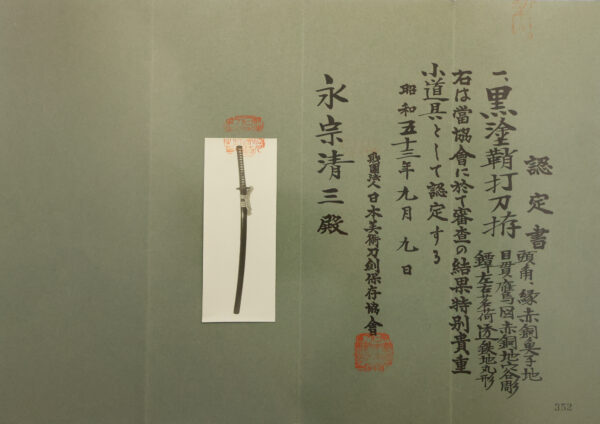 認定書
一、黒塗鞘打刀拵
頭角、縁赤銅魚子地
目貫鷹図赤銅地容彫
鐔左右茗荷透鉄地丸形
右は當協會に於て審査の結果特別貴重
小道具として認定する
昭和五十三年九月九日
財團法人日本美術刀剣保存協會
永宗清三殿
352